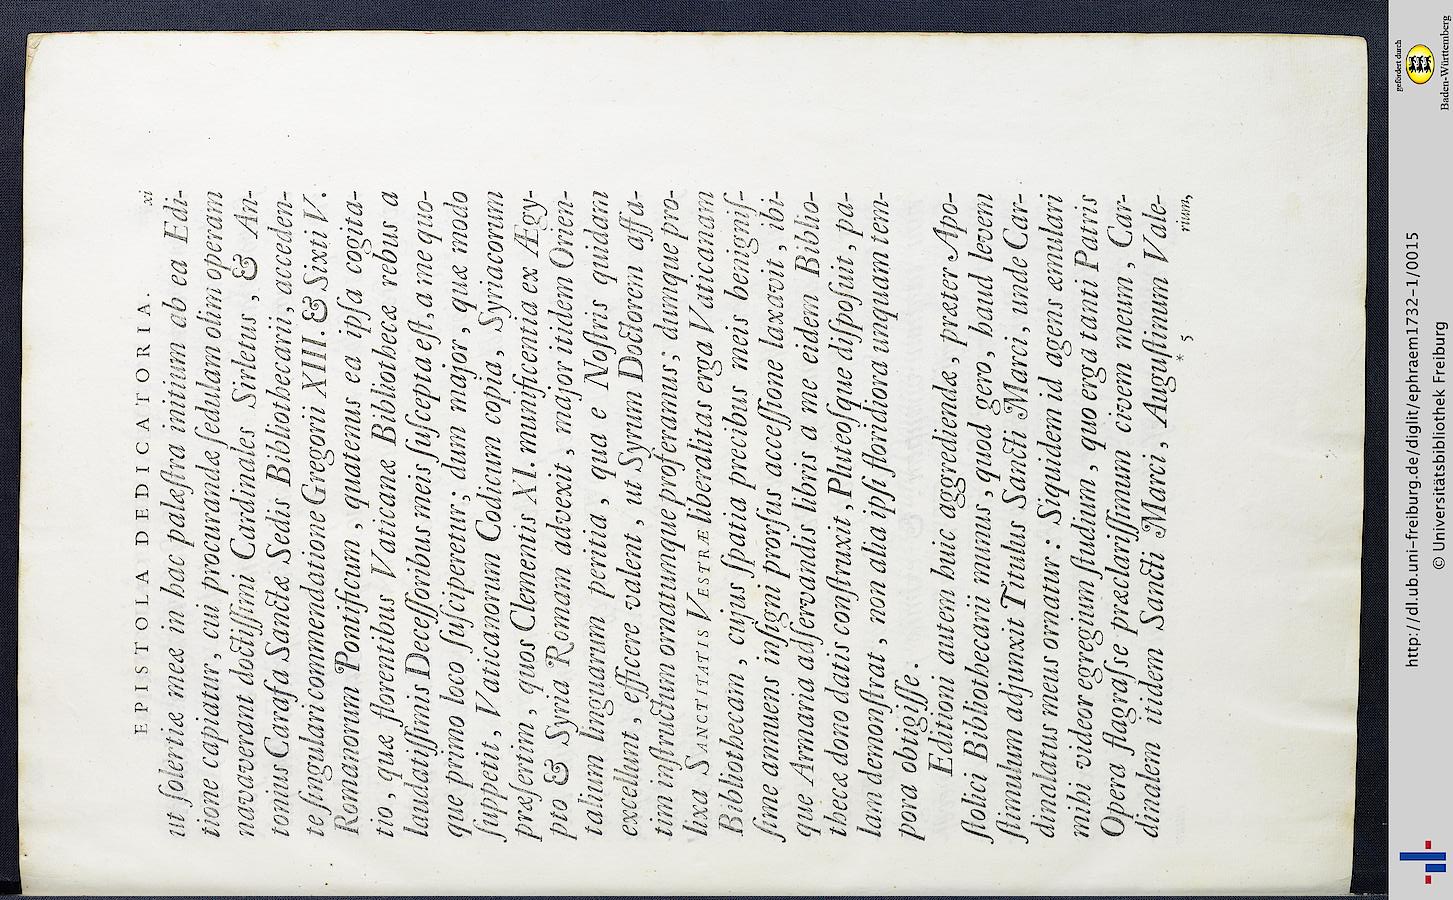 EPISTOLA DEDICATORIA. xi
ut ſolertiæ meæ in hac palæſtra initium ab ea Edi-
tione capiatur, cui procurandæ ſedulam olim operam
navaverant doctiſſimi Cardinales Sirletus, & An-
tonius Carafa Sanctæ Sedis Bibliothecarii, acceden-
te ſingulari commendatione Gregorii XIII. & Sixti V.
Romanorum Pontificum, quatenus ea ipſa cogita-
tio, quæ florentibus Vaticanæ Bibliothecæ rebus a
laudatiſſimis Deceſſoribus meis ſuſcepta eſt, a me quo-
que primo loco ſuſciperetur; dum major, quæ modo
ſuppetit, Vaticanorum Codicum copia, Syriacorum
præſertim, quos Clementis XI. munificentia ex Ægy-
pto & Syria Romam advexit, major itidem Orien-
talium linguarum peritia, qua e Noſtris quidam
excellunt, efficere valent, ut Syrum Doctorem affa-
tim inſtructum ornatumque proferamus; dumque pro-
lixa SANCTITATIS VESTRÆ liberalitas erga Vaticanam
Bibliothecam, cujus ſpatia precibus meis benigniſ-
ſime annuens inſigni prorſus acceſſione laxavit, ibi-
que Armaria adſervandis libris a me eidem Biblio-
thecæ dono datis conſtruxit, Pluteoſque diſpoſuit, pa-
lam demonſtrat, non alia ipſi floridiora unquam tem-
pora obtigiſſe.
Editioni autem huic aggrediendæ, præter Apo-
ſtolici Bibliothecarii munus, quod gero, haud levem
ſtimulum adjunxit Titulus Sancti Marci, unde Car-
dinalatus meus ornatur: Siquidem id agens æmulari
mihi videor egregium ſtudium, quo erga tanti Patris
Opera flagraſse præclariſſimum civem meum, Car-
dinalem itidem Sancti Marci, Auguſtinum Vale-
* 5 rium,
gefördert durch
Baden-Württemberg
http://dl.ub.uni-freiburg.de/diglit/ephraem1732-1/0015
© Universitätsbibliothek Freiburg